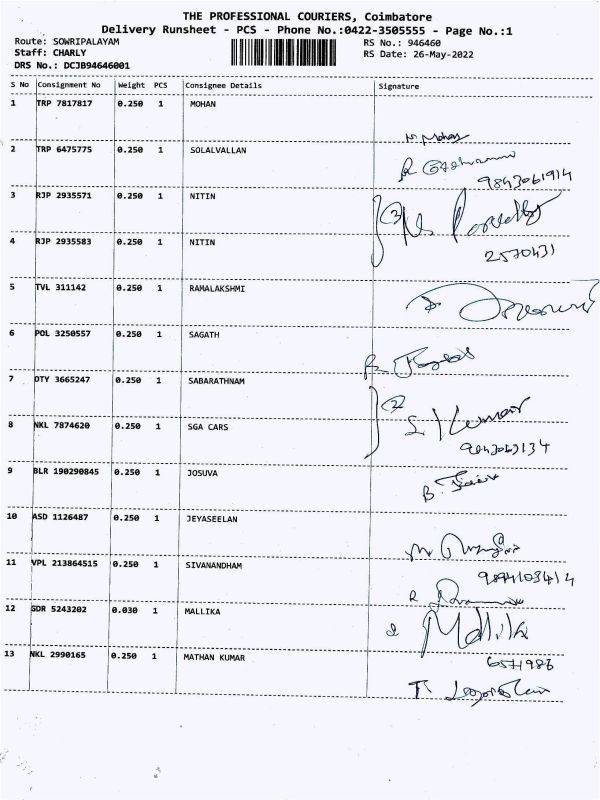 THE PROFESSIONAL COURIERS, Coimbatore
Delivery Runsheet - PCS - Phone No.:0422-3505555 - Page No.:1
Route: SOWRIPALAYAM RS No.: 946460
Staff: CHARLY RS Date: 26-May-2022
DRS No.: DCJB94646001
S No Consignment No Weight PCS Consignee Details Signature
1 TRP 7817817 0.250 1 MOHAN
2 TRP 6475775 0.250 1 SOLALVALLAN
9843061914
3 RJP 2935571 0.250 1 NITIN
2
4 RJP 2935583 0.250 1 NITIN
2570431
5 TVL 311142 0.250 1 RAMALAKSHMI
6 POL 3250557 0.250 1 SAGATH
7 DTY 3665247 0.250 1 SABARATHNAM
2
8 NKL 7874620 0.250 1 SGA CARS
S Kumar
9 BLR 190290845 0.250 1 JOSUVA
10 ASD 1126487 0.250 1 JEYASEELAN
11 VPL 213864515 0.250 1 SIVANANDHAM
12 GDR 5243202 0.030 1 MALLIKA
Mallika
13 NKL 2990165 0.250 1 MATHAN KUMAR